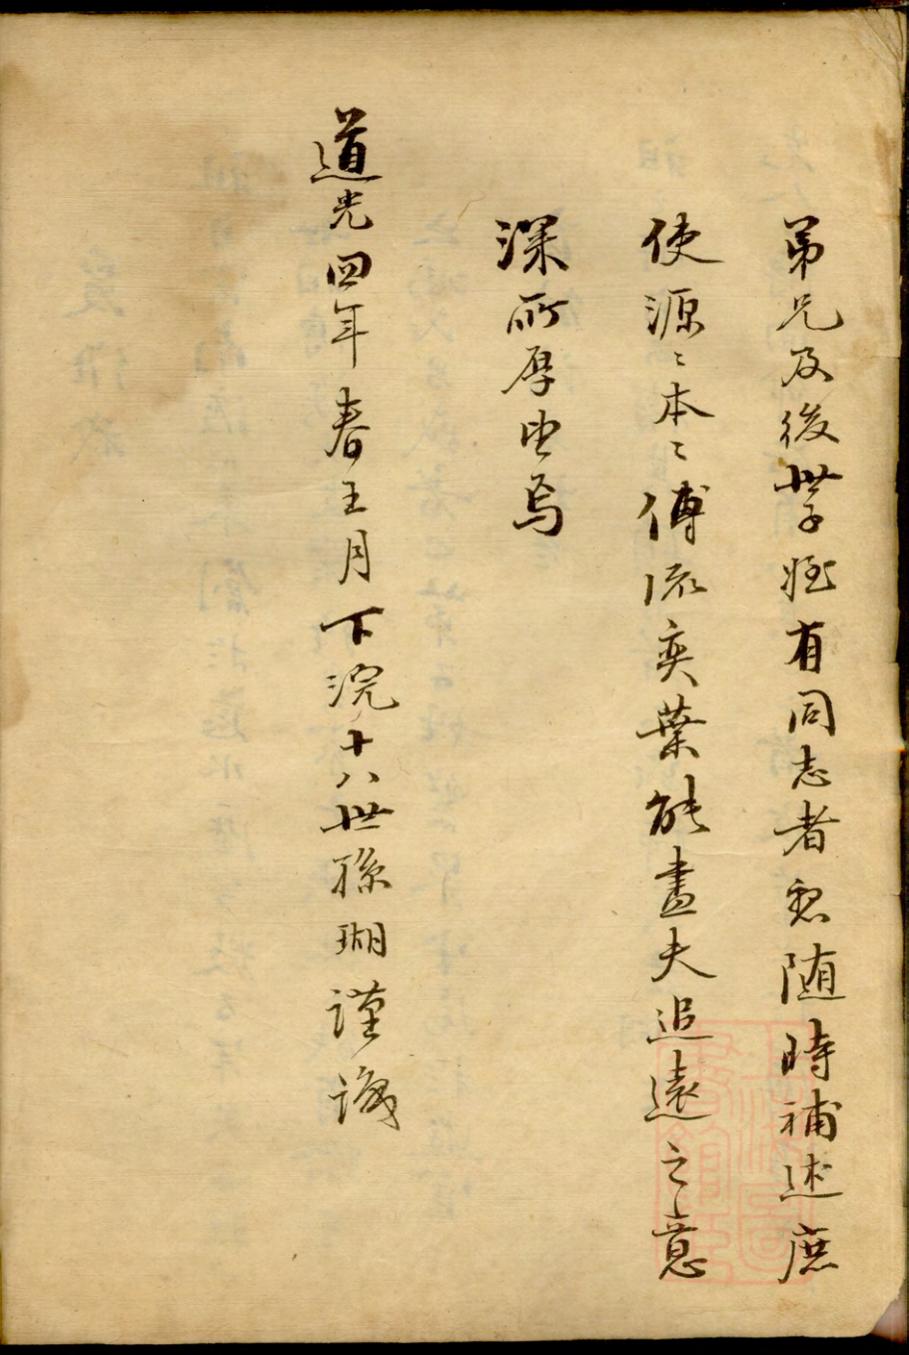 弟兄及後世子姪有同志者懇随時補述庶
使源〻本〻傅流奕葉能盡夫追遠之意
深所厚望焉
道光四年春王月下浣十八世孫瑚謹識